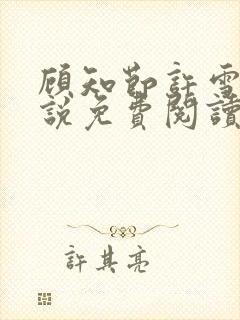 顾知節許雪
説免費閱讀
許其亮